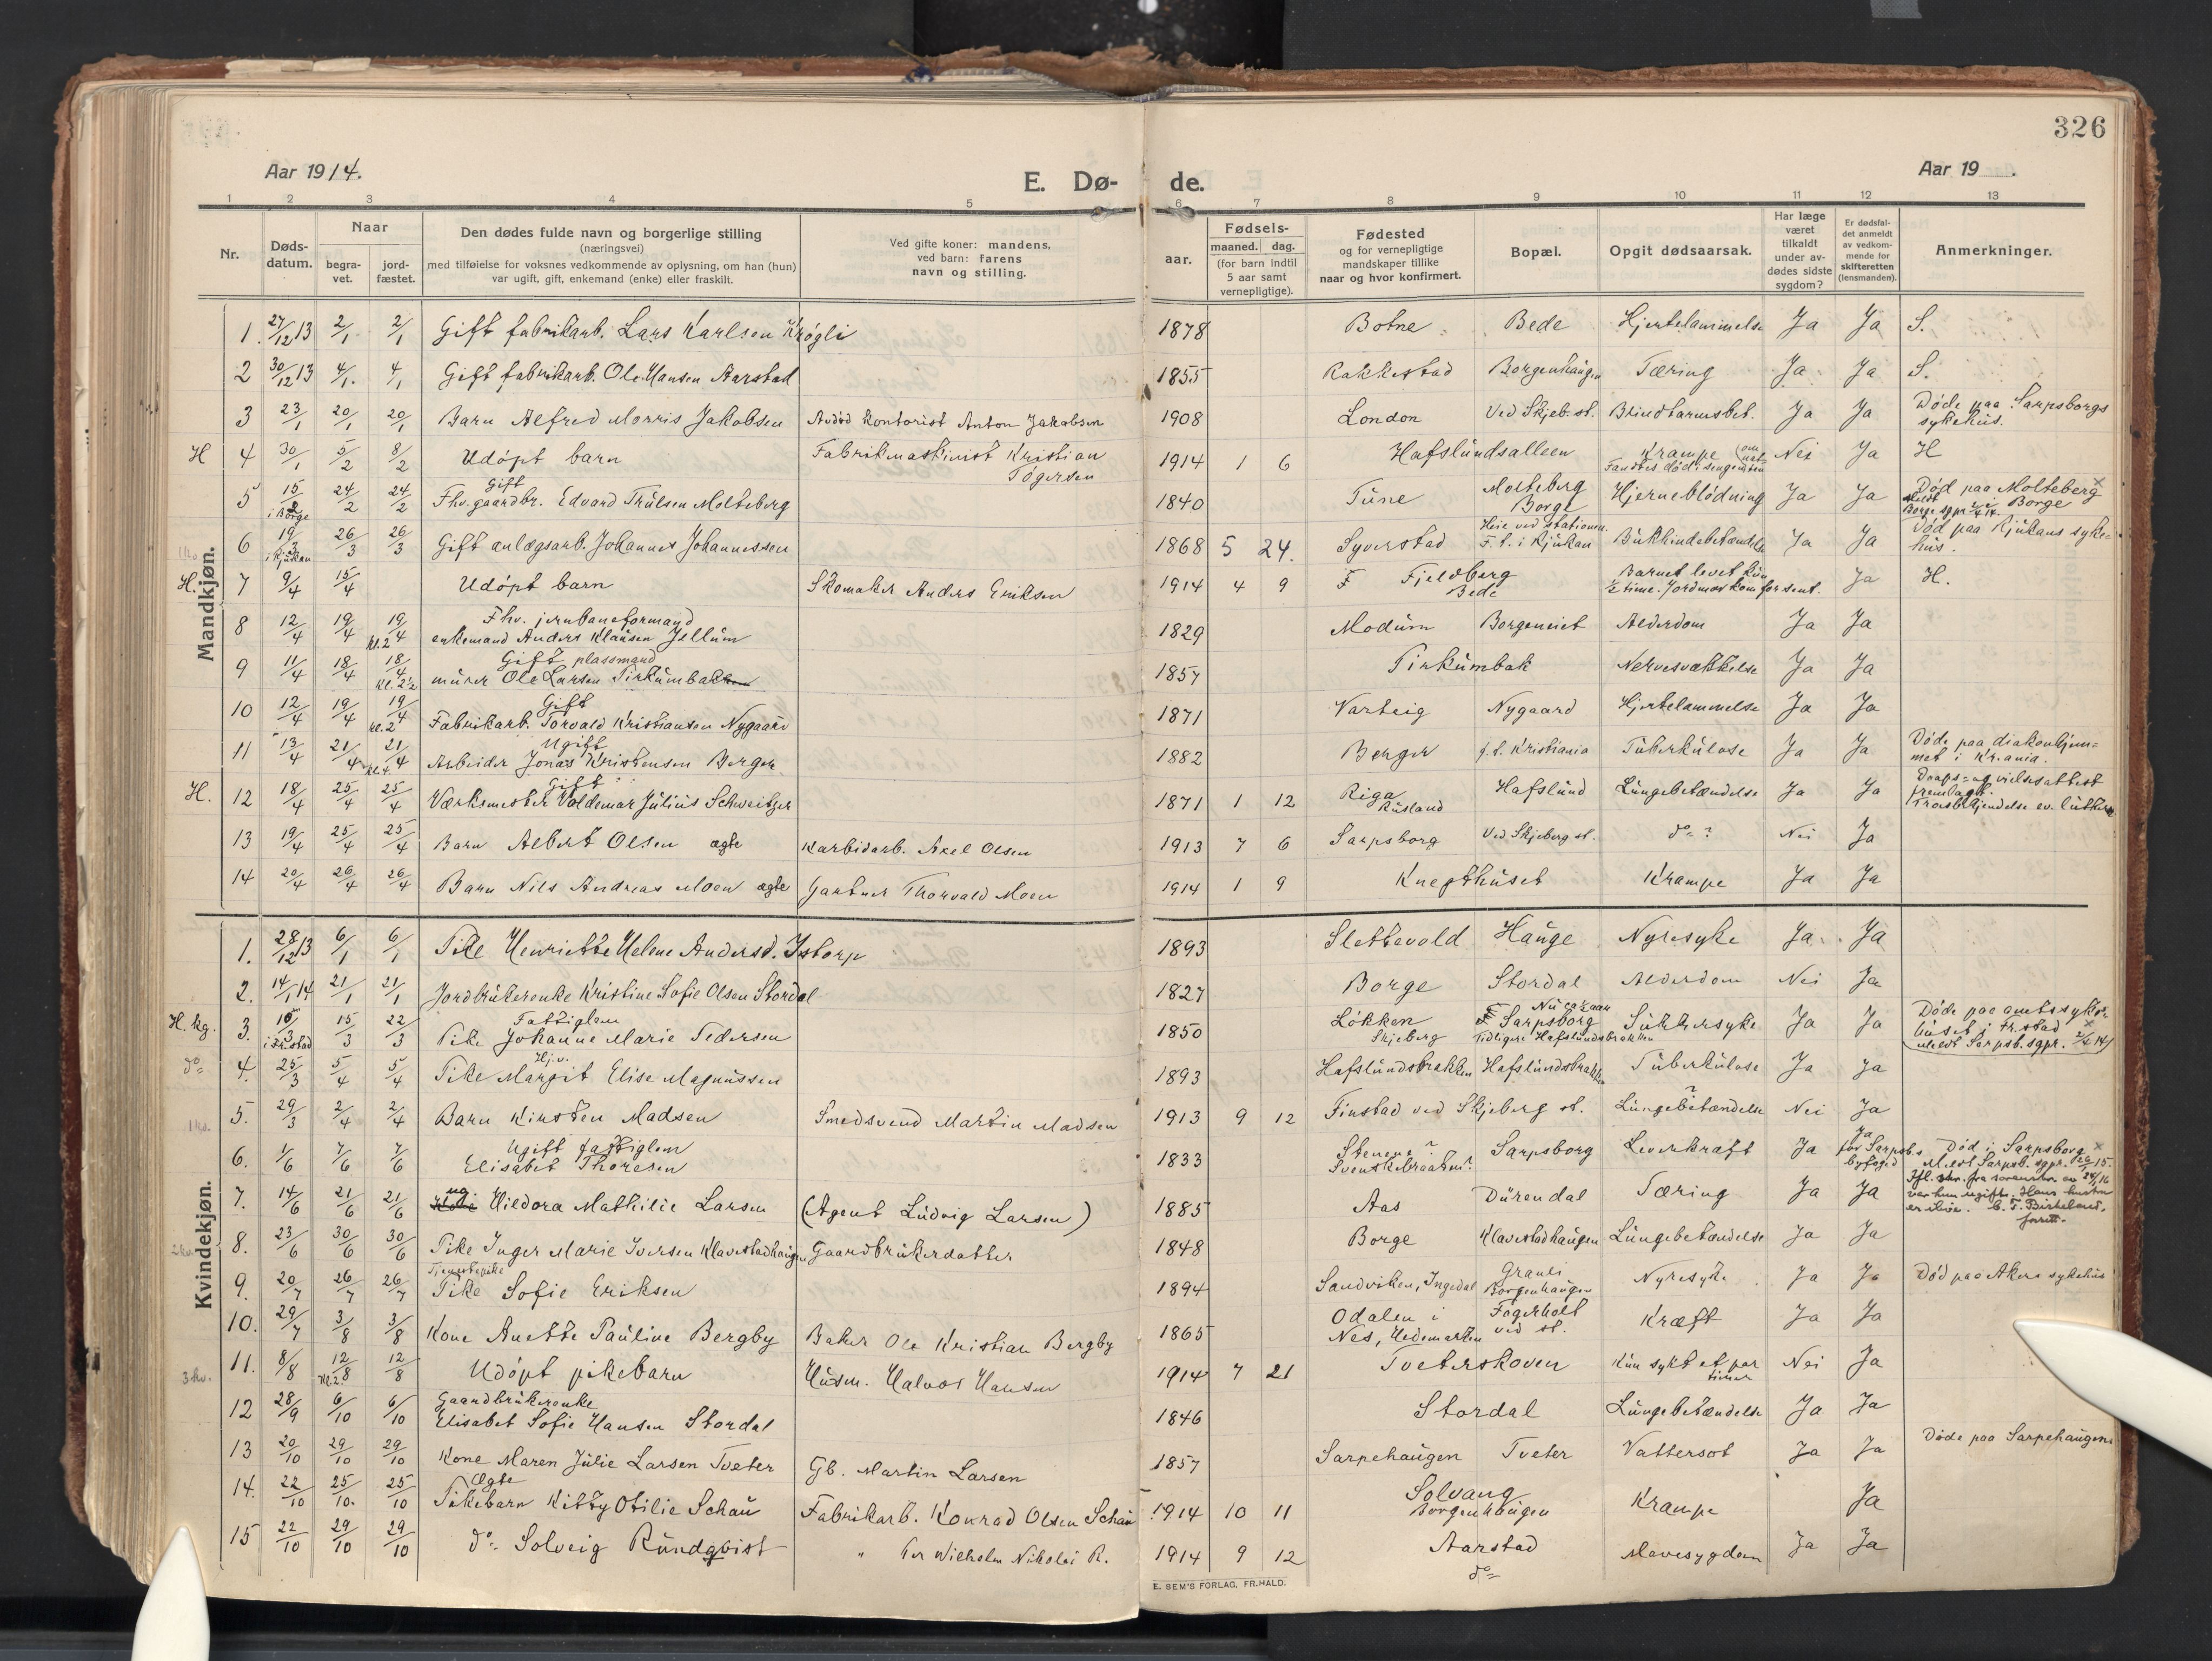 326
Aar 1914.
E. Dø-
de.
Aar 19 .
1 2 3 4 5 6 7 8 9 10 11 12 13
Nr.
Døds-
datum.
Naar
begra-
vet.
jord-
fæstet.
Den dødes fulde navn og borgerlige stilling
(næringsvei)
med tilføielse for voksnes vedkommende av oplysning, om han (hun)
var ugift, gift, enkemand (enke) eller fraskilt.
Ved gifte koner: mandens,
ved barn: farens
navn og stilling.
Fødsels-
aar.
maaned. dag.
(for barn indtil
5 aar samt
vernepligtige).
Fødested
og for vernepligtige
mandskaper tillike
naar og hvor konfirmert.
Bopæl.
Opgit dødsaarsak.
Har læge
været
tilkaldt
under av-
dødes sidste
sygdom?
Er dødsfal-
det anmeldt
av vedkom-
mende for
skifteretten
(lensmanden).
Anmerkninger.
Mandkjøn.
1. 27/12 13 2/1 2/1 Gift fabrikarb. Lars Karlsen Krøgli 1878 Botne Bede Hjertelammelse Ja Ja S.
2 30/12 13 4/1. 4/1 Gift fabrikarb. Ole Hansen Aarstad 1855 Rakkestad Borgenhaugen Tæring Ja Ja S.
3 23/1 20/1 20/1 Barn Alfred Morris Jakobsen Avdød Kontorist Anton Jakobsen 1908 London Ved Skjeb. st. Blindtarmsbet. Ja Ja Døde paa Sarpsborgs
sykehus.
H 4 30/1 5/2 8/2 Udøpt barn Fabrikmaskinist Kristian
Tøgersen 1914 1 6 Hafslundsalleen Krampe (om nat-
Fandtes død i sengen Nei Ja H
5 15/2 i Borge 24/2 24/2 Gift
Fhv. gaardbr. Edvard Trulsen Molteberg 1840 Tune Molteberg
Borge Hjerneblødning Ja Ja Død paa Molteberg
i Borge
6 19/3 i Rjukan 26/3 26/3 Gift anlægsarb. Johannes Johannessen 1868 5 24. Syverstad Heie ved stationen.
F. t. i Rjukan Bukhindebetændelse Ja Ja Død paa Rjukans syke-
hus.
H. 7 9/4 15/4 Udøpt barn Skomaker Anders Eriksen 1914 4 9 F Fjeldberg
Bede Barnet levet kun
½ time. Jordmor kom for sent. Ja H.
8 12/4 19/4 19/4 kl. 2 Fhv. jernbaneformand
enkemand Anders Klausen Jellum 1829 Modum Borgeneiet Alderdom Ja Ja
9 11/4 18/4 18/4 kl. 2½ Gift plassmand
murer Ole Larsen Tirkumbakken 1857 Tirkumbak Nervesvækkelse Ja Ja
10 12/4 19/4 19/4 kl. 2 Gift
Fabrikarb. Torvald Kristiansen Nygaard 1871 Varteig Nygaard Hjertelammelse Ja Ja
11 13/4 21/4 21/4 kl. 4. Ugift
Arbeider Jonas Kristensen Berger 1882 Berger f. t. Kristiania Tuberkulose Ja Ja Døde paa diakonhjem-
met i Kr.ania.
H. 12 18/4 25/4 25/4 Gift
Værksmester Valdemar Julius Schweitzer 1871 1 12 Riga
Rusland Hafslund Lungebetændelse Ja Ja Daaps- og vielsesattest
fremlagt.
Trosbekjendelse ev. luthersk
13 19/4 25/4 25/4 Barn Albert Olsen ægte Karbidarb. Axel Olsen 1913 7 6 Sarpsborg Ved Skjeberg st. do ? Nei Ja
14 20/4 26/4 26/4 Barn Nils Andreas Moen ægte Gartner Thorvald Moen 1914 1 9 Knepthuset Krampe Ja Ja
Kvindekjøn.
1. 28/12 13 6/1 6/1 Pike Henriette Helene Andersd. Istorp 1893 Slettevold Hauge Nyresyke Ja Ja
2. 14/1 14 21/1 21/1 Jordbrukerenke Kristine Sofie Olsen Stordal 1827 Borge Stordal Alderdom Nei Ja
H. kg. 3. 10/3 i Fr.stad 15/3 22/3 Fattiglem
Pike Johanne Marie Pedersen 1850 Løkken
Skjeberg Sarpsborg
Tidligere Hafslundsbrakken Sukkersyke Ja Ja Døde paa amtssyke-
huset i Fr.stad
Meldt Sarpsb. sgpr. 2/4 14
do 4. 25/3 5/4 5/4 Hj. v.
Pike Margit Elise Magnussen 1893 Hafslundsbrakken Hafslundsbrakken Tuberkulose Ja Ja
5. 29/3 2/4 2/4 Barn Kirsten Madsen Smedsvend Martin Madsen 1913 9 12 Finstad ved Skjeberg st. Lungebetændelse ? Nei Ja
6. 1/6 7/6 7/6 Ugift fattiglem
Elisabet Thoresen 1833 Stenene ?
Sarpsborg Leverkræft Ja Ja
for Sarpsb.s
byfoged Død i Sarpsborg
Meldt Sarpsb. sgpr.
7. 14/6 21/6 21/6 ug
Hildora Mathilie Larsen (Agent Ludvig Larsen) 1885 Aas Dürendal Tæring Ja Ja var hun ugift. Hans hustru
er ilive. C. F. Birkeland.
8. 23/6 30/6 30/6 Pike Inger Marie Iversen Klavestadhaugen Gaardbrukerdatter 1848 Borge Klavestadhaugen Lungebetændelse Ja Ja
9. 20/7 26/7 26/7 Tjenestepike
Pike Sofie Eriksen 1894 Sandviken, Ingedal Granli
Borgenhaugen Nyresyke Ja Ja Død paa Akers sykehus
10. 29/7 3/8 3/8 Kone Anette Pauline Bergby Baker Ole Kristian Bergby 1865 Odalen i
Nes, Hedemarken Fagerholt
ved st. Kræft Ja Ja
11. 8/8 12/8 kl. 2. 12/8 Udøpt pikebarn Husm. Halvor Hansen 1914 7 21 Tveterskoven Kun sykt et par
timer Nei Ja
12 28/9 6/10 6/10 Gaardbrukerenke
Elisabet Sofie Hansen Stordal 1846 Stordal Lungebetændelse Ja Ja
13 20/10 29/10 29/10 Kone Maren Julie Larsen Tveter Gb. Martin Larsen 1857 Sarpehaugen Tveter Vattersot Ja Ja Døde paa Sarpehaugen.
14. 22/10 25/10. 25/10 Ægte
Pikebarn Kitty Otilie Schau Fabrikarb. Konrad Olsen Schau 1914 10 11 Solvang
Borgenhaugen Krampe Ja
15 22/10 29/10 29/10 do Solveig Rundqvist " Per Wilhelm Nikolai R. 1914 9 12 Aarstad
do Mavesygdom Ja Ja
E. SEM'S FORLAG, FR.HALD.